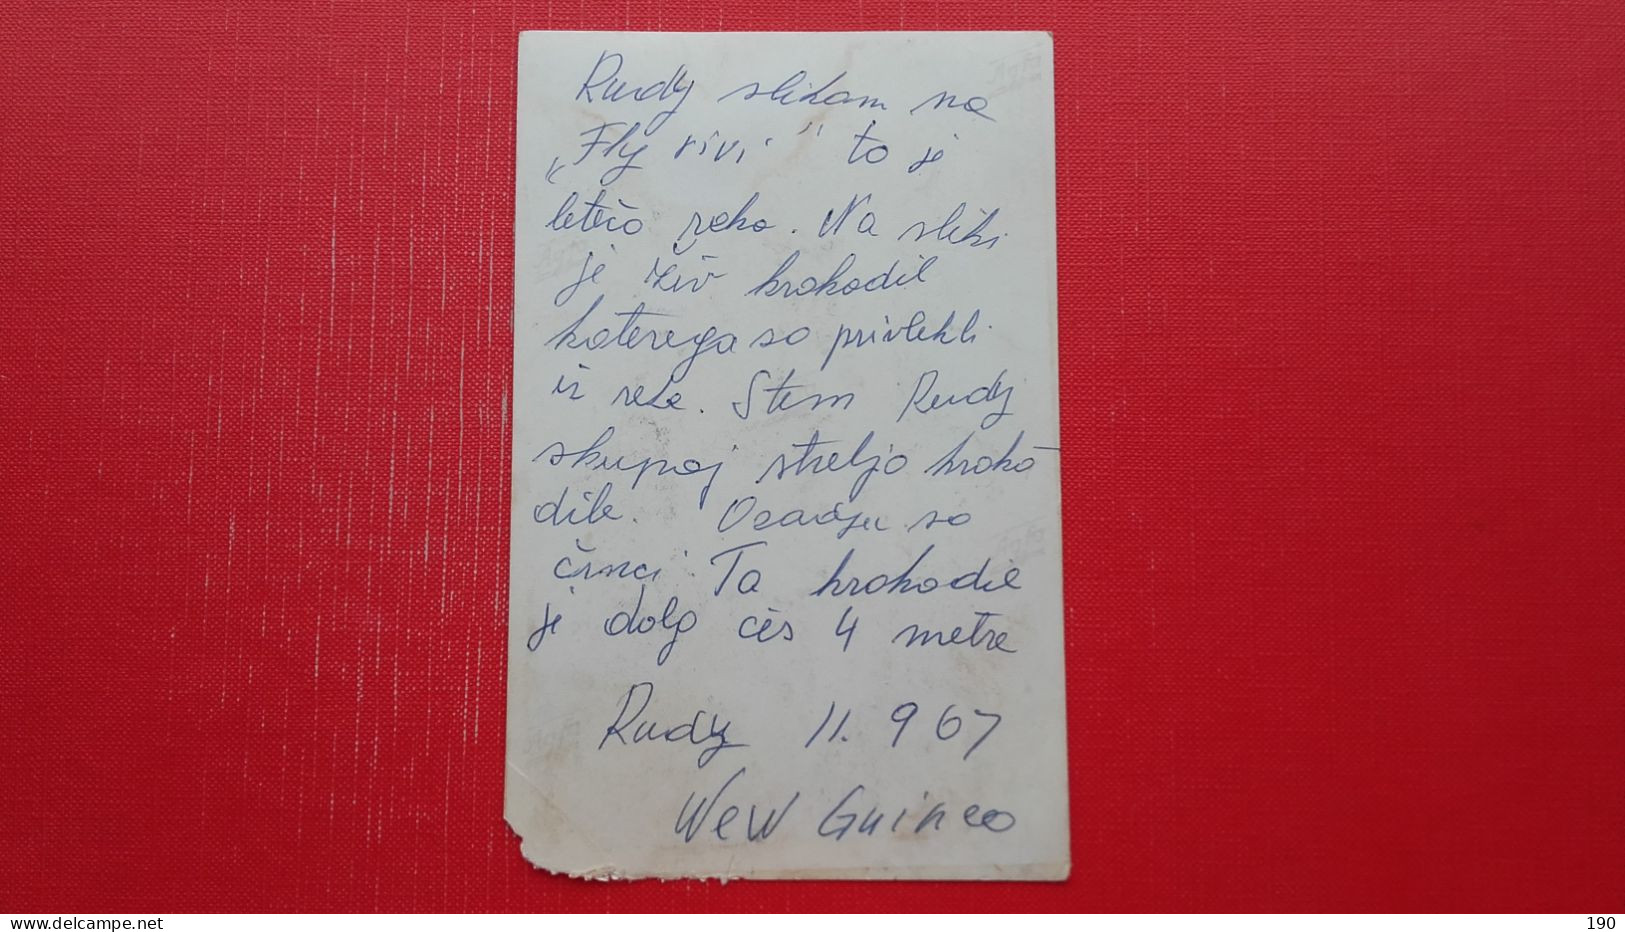 Rudy slikam na
„Fly rivi" to je
leteča reka. Na sliki
je živ krokodil
katerega so privlekli
iz reke. Stem Rudy
skupaj streljo kroko
dile. Ozadju so
črnci. Ta krokodil
je dolg čes 4 metre
Rudy 11. 9 67
New Guinea
delcampe.net
190